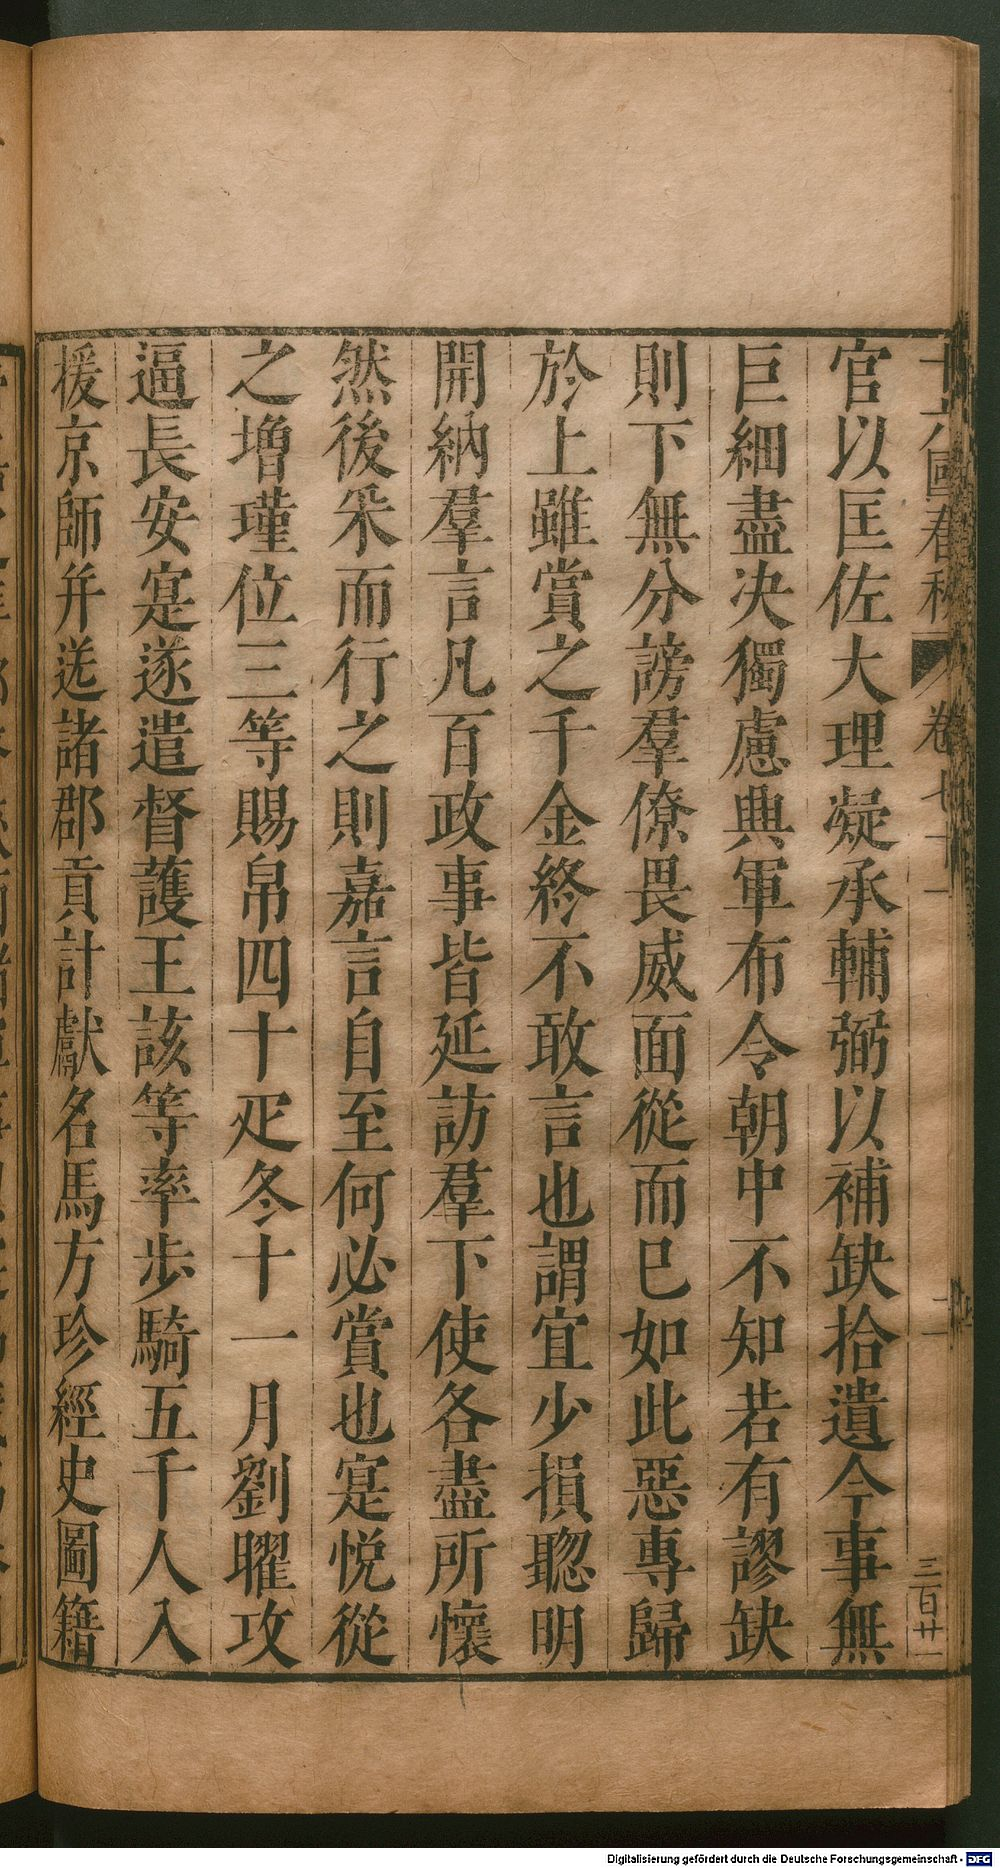 十六國春秋 卷七十一 二 三百廿一
官以匡佐大理凝承輔弼以補缺拾遺今事無
巨細盡决獨慮典軍布令朝中不知若有謬缺
則下無分謗羣僚畏威面從而已如此惡專歸
於上雖賞之千金終不敢言也謂宜少損聦明
開納羣言凡百政事皆延訪羣下使各盡所懷
然後采而行之則嘉言自至何必賞也寔悅從
之增瑾位三等賜帛四十疋冬十一月劉曜攻
逼長安寔遂遣督護王該等率步騎五千人入
援京師并送諸郡貢計獻名馬方珍經史圖籍
Digitalisierung gefördert durch die Deutsche Forschungsgemeinschaft - DFG